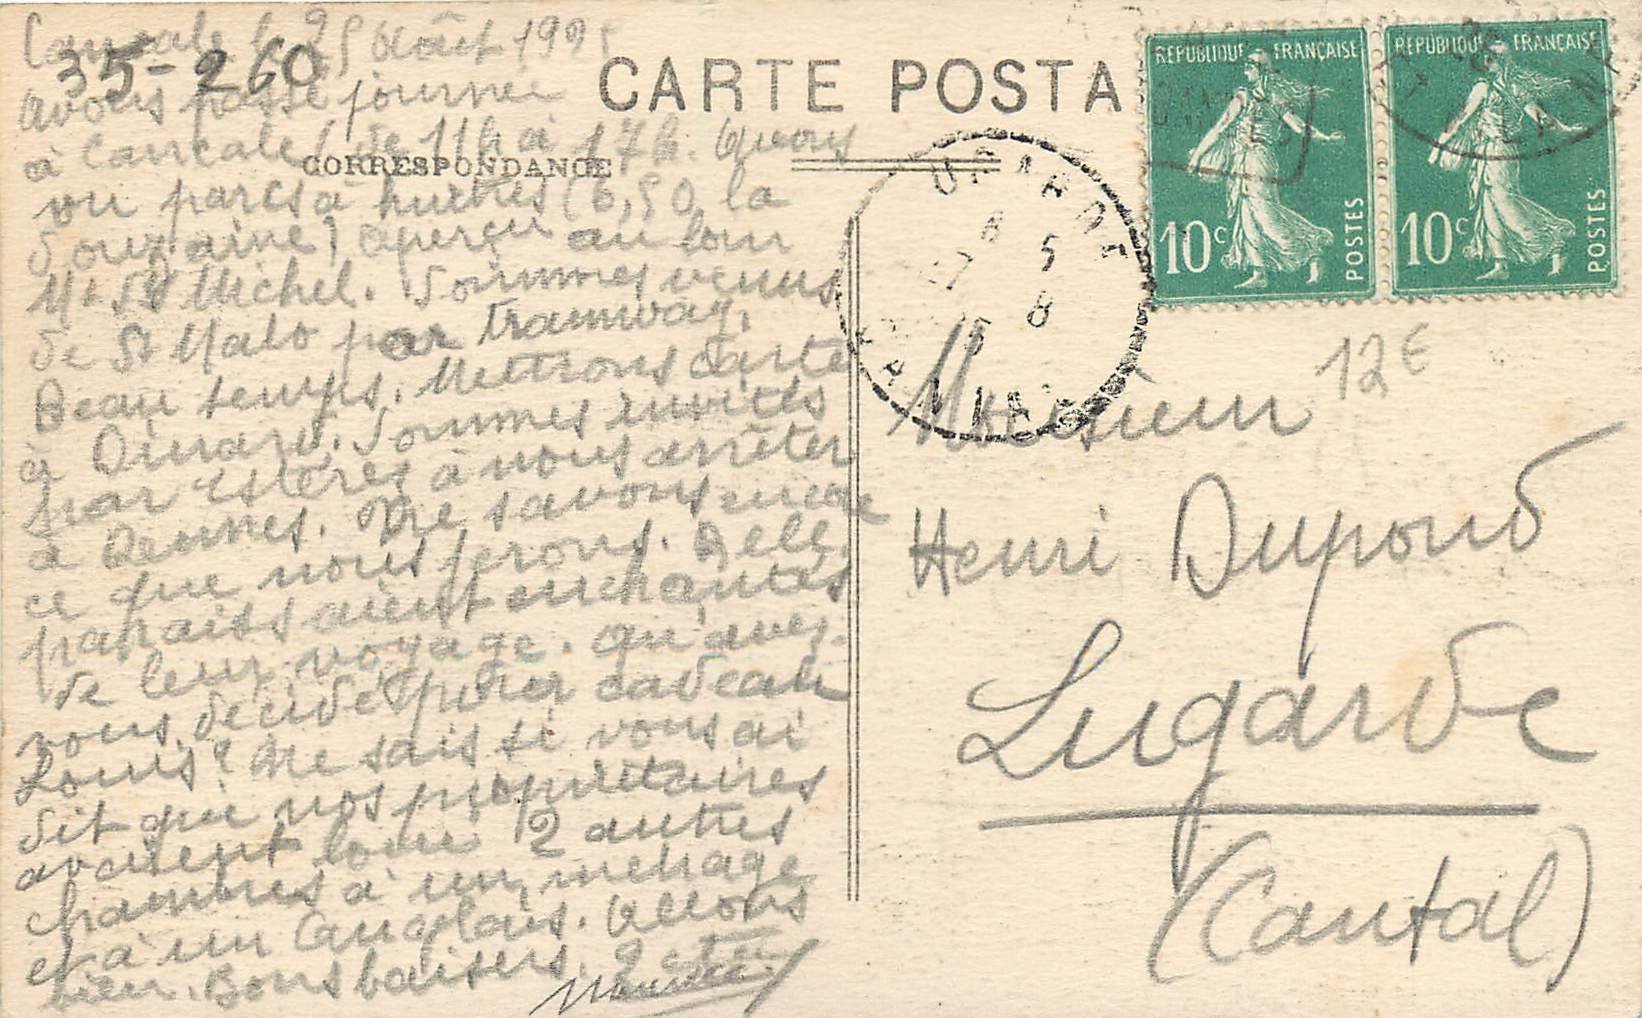 Cancale le 25 Août 1925
35-260
avons passé journée
à Cancale, de 11h à 17h. Avons
vu parcs à huîtres (6,50 la
douzaine) aperçu au loin
Mt St Michel. Sommes venus
de St Malo par tramway.
Beau temps. Mettrons carte
à Dinard. Sommes invités
par Estères à nous arrêter
à Rennes. Ne savons encore
ce que nous ferons. Belle
paraissaient enchantés
de leur voyage. Qu'avez-
vous décidé pour cadeau
Louis? Ne sais si vous ai
dit que nos propriétaires
avaient loué 2 autres
chambres à un ménage
et à un Anglais. Allons
bien. Bons baisers.
CARTE POSTA
CORRESPONDANCE
REPUBLIQUE FRANÇAISE
10c POSTES
REPUBLIQUE FRANÇAISE
10c POSTES
12€
Monsieur
Henri Dupond
Lugarde
(Cantal)